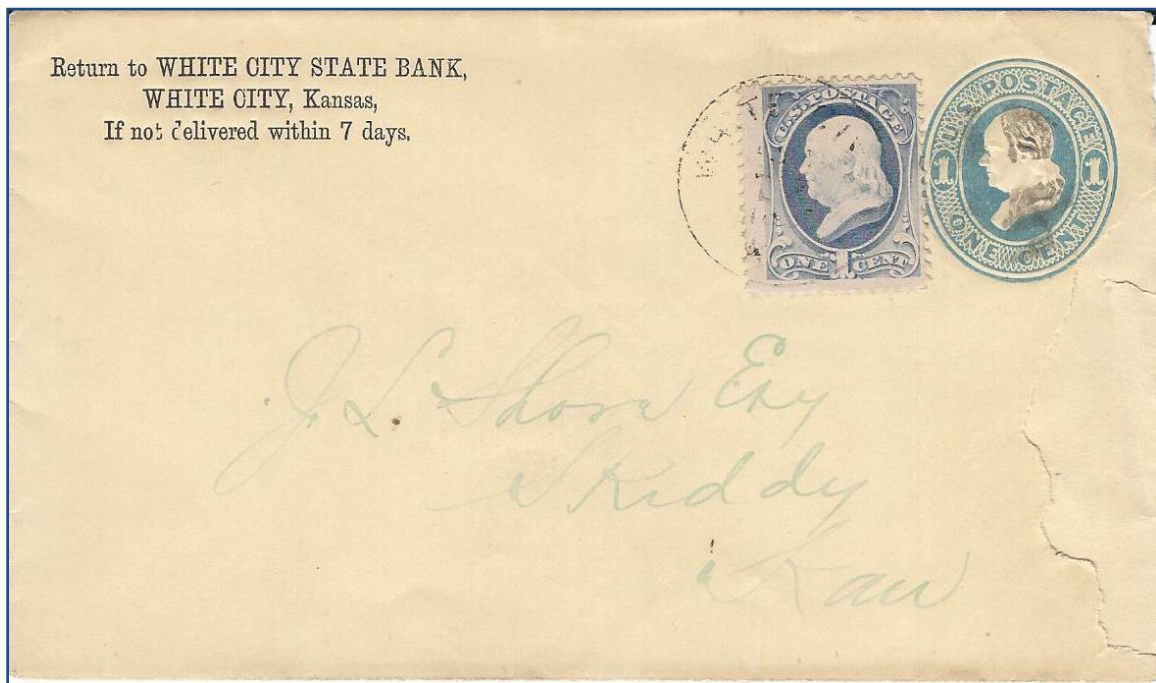 Return to WHITE CITY STATE BANK,
WHITE CITY, Kansas,
If not delivered within 7 days.
WHITE
U.S. POSTAGE
ONE 1 CENT
U.S. POSTAGE
1 1
ONE CENT
J. L. Shore Esq
Skiddy
Kan